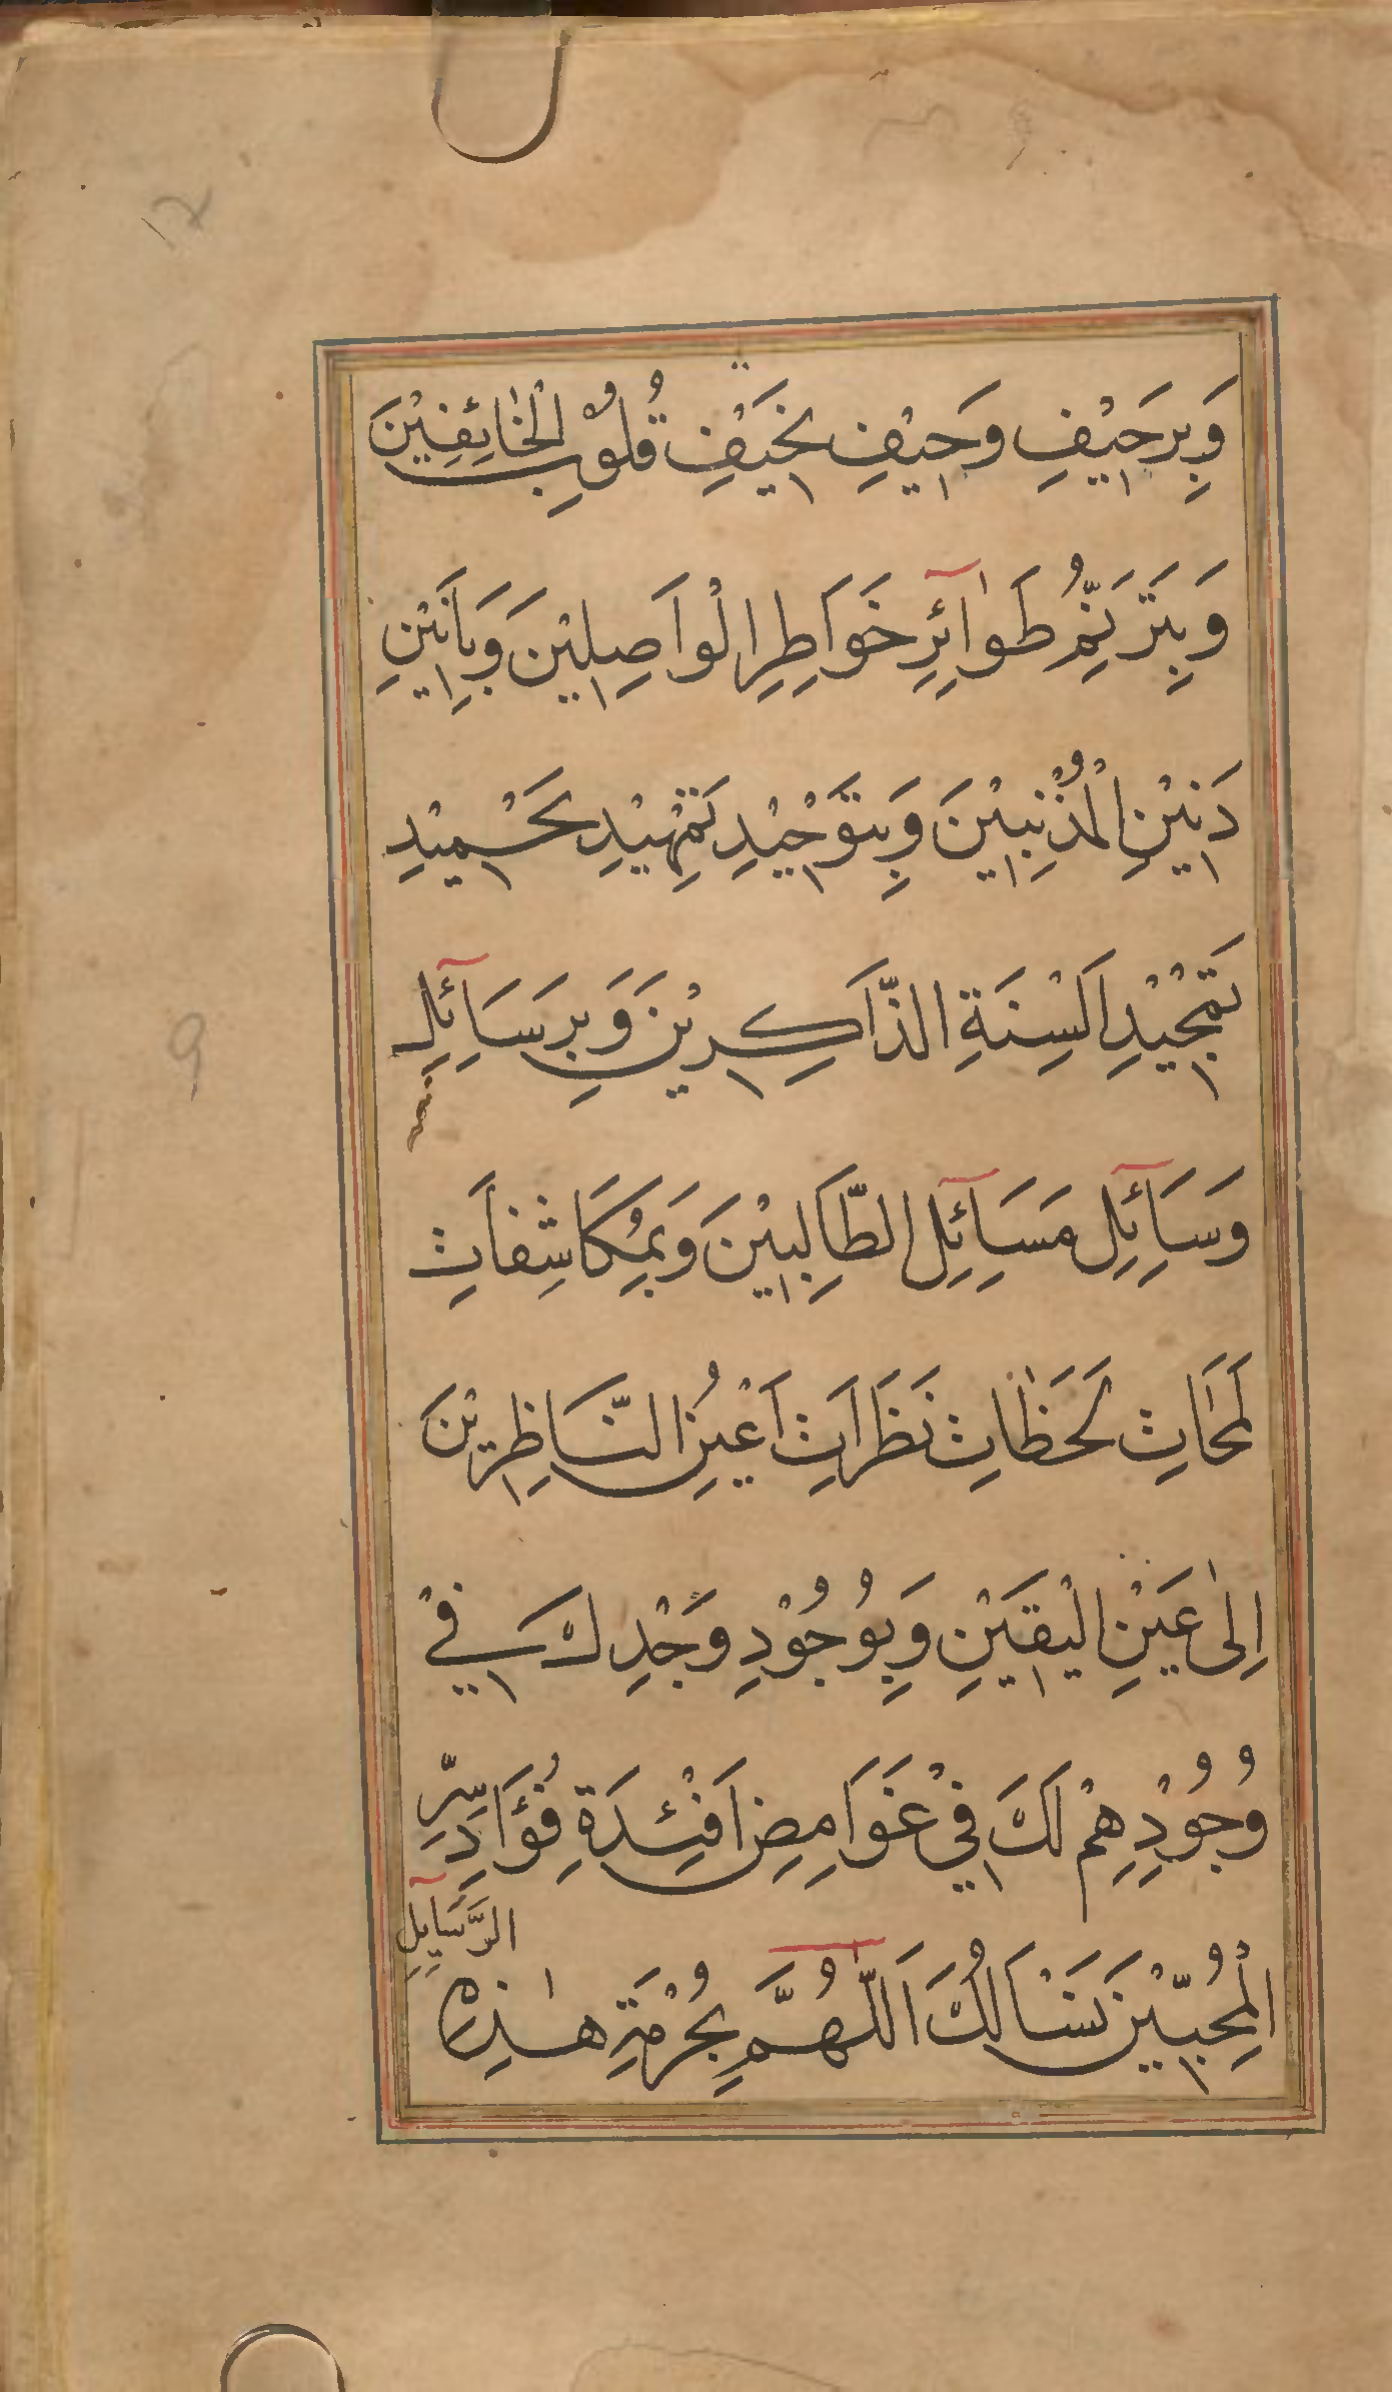 وَبِرَجِيْفِ وَجِيْفِ نَخِيْفِ قُلُوْبِ الْخَائِفِيْنَ
وَبِتَرَنُّمِ طَوَآئِرِ خَوَاطِرِ الْوَاصِلِيْنَ وَبِاَنِيْنِ
دَنِيْنِ الْمُذْنِبِيْنَ وَبِتَوْحِيْدِ تَمْهِيْدِ تَحْمِيْدِ
تَمْجِيْدِ اَلْسِنَةِ الذَّاكِرِيْنَ وَبِرَسَآئِلِ
وَسَآئِلِ مَسَآئِلِ الطَّالِبِيْنَ وَبِمُكَاشَفَاتِ
لَمَحَاتِ لَحَظَاتِ نَظَرَاتِ اَعْيُنِ النَّاظِرِيْنَ
اِلٰى عَيْنِ الْيَقِيْنِ وَبِوُجُوْدِ وَجْدِكَ فِيْ
وُجُوْدِهِمْ لَكَ فِيْ غَوَامِضِ اَفْئِدَةِ فُؤَادِ سِرِّ
الْمُحِبِّيْنَ نَسْاَلُكَ اَللّٰهُمَّ بِحُرْمَةِ هٰذِهِ
الرَّسَآئِلِ